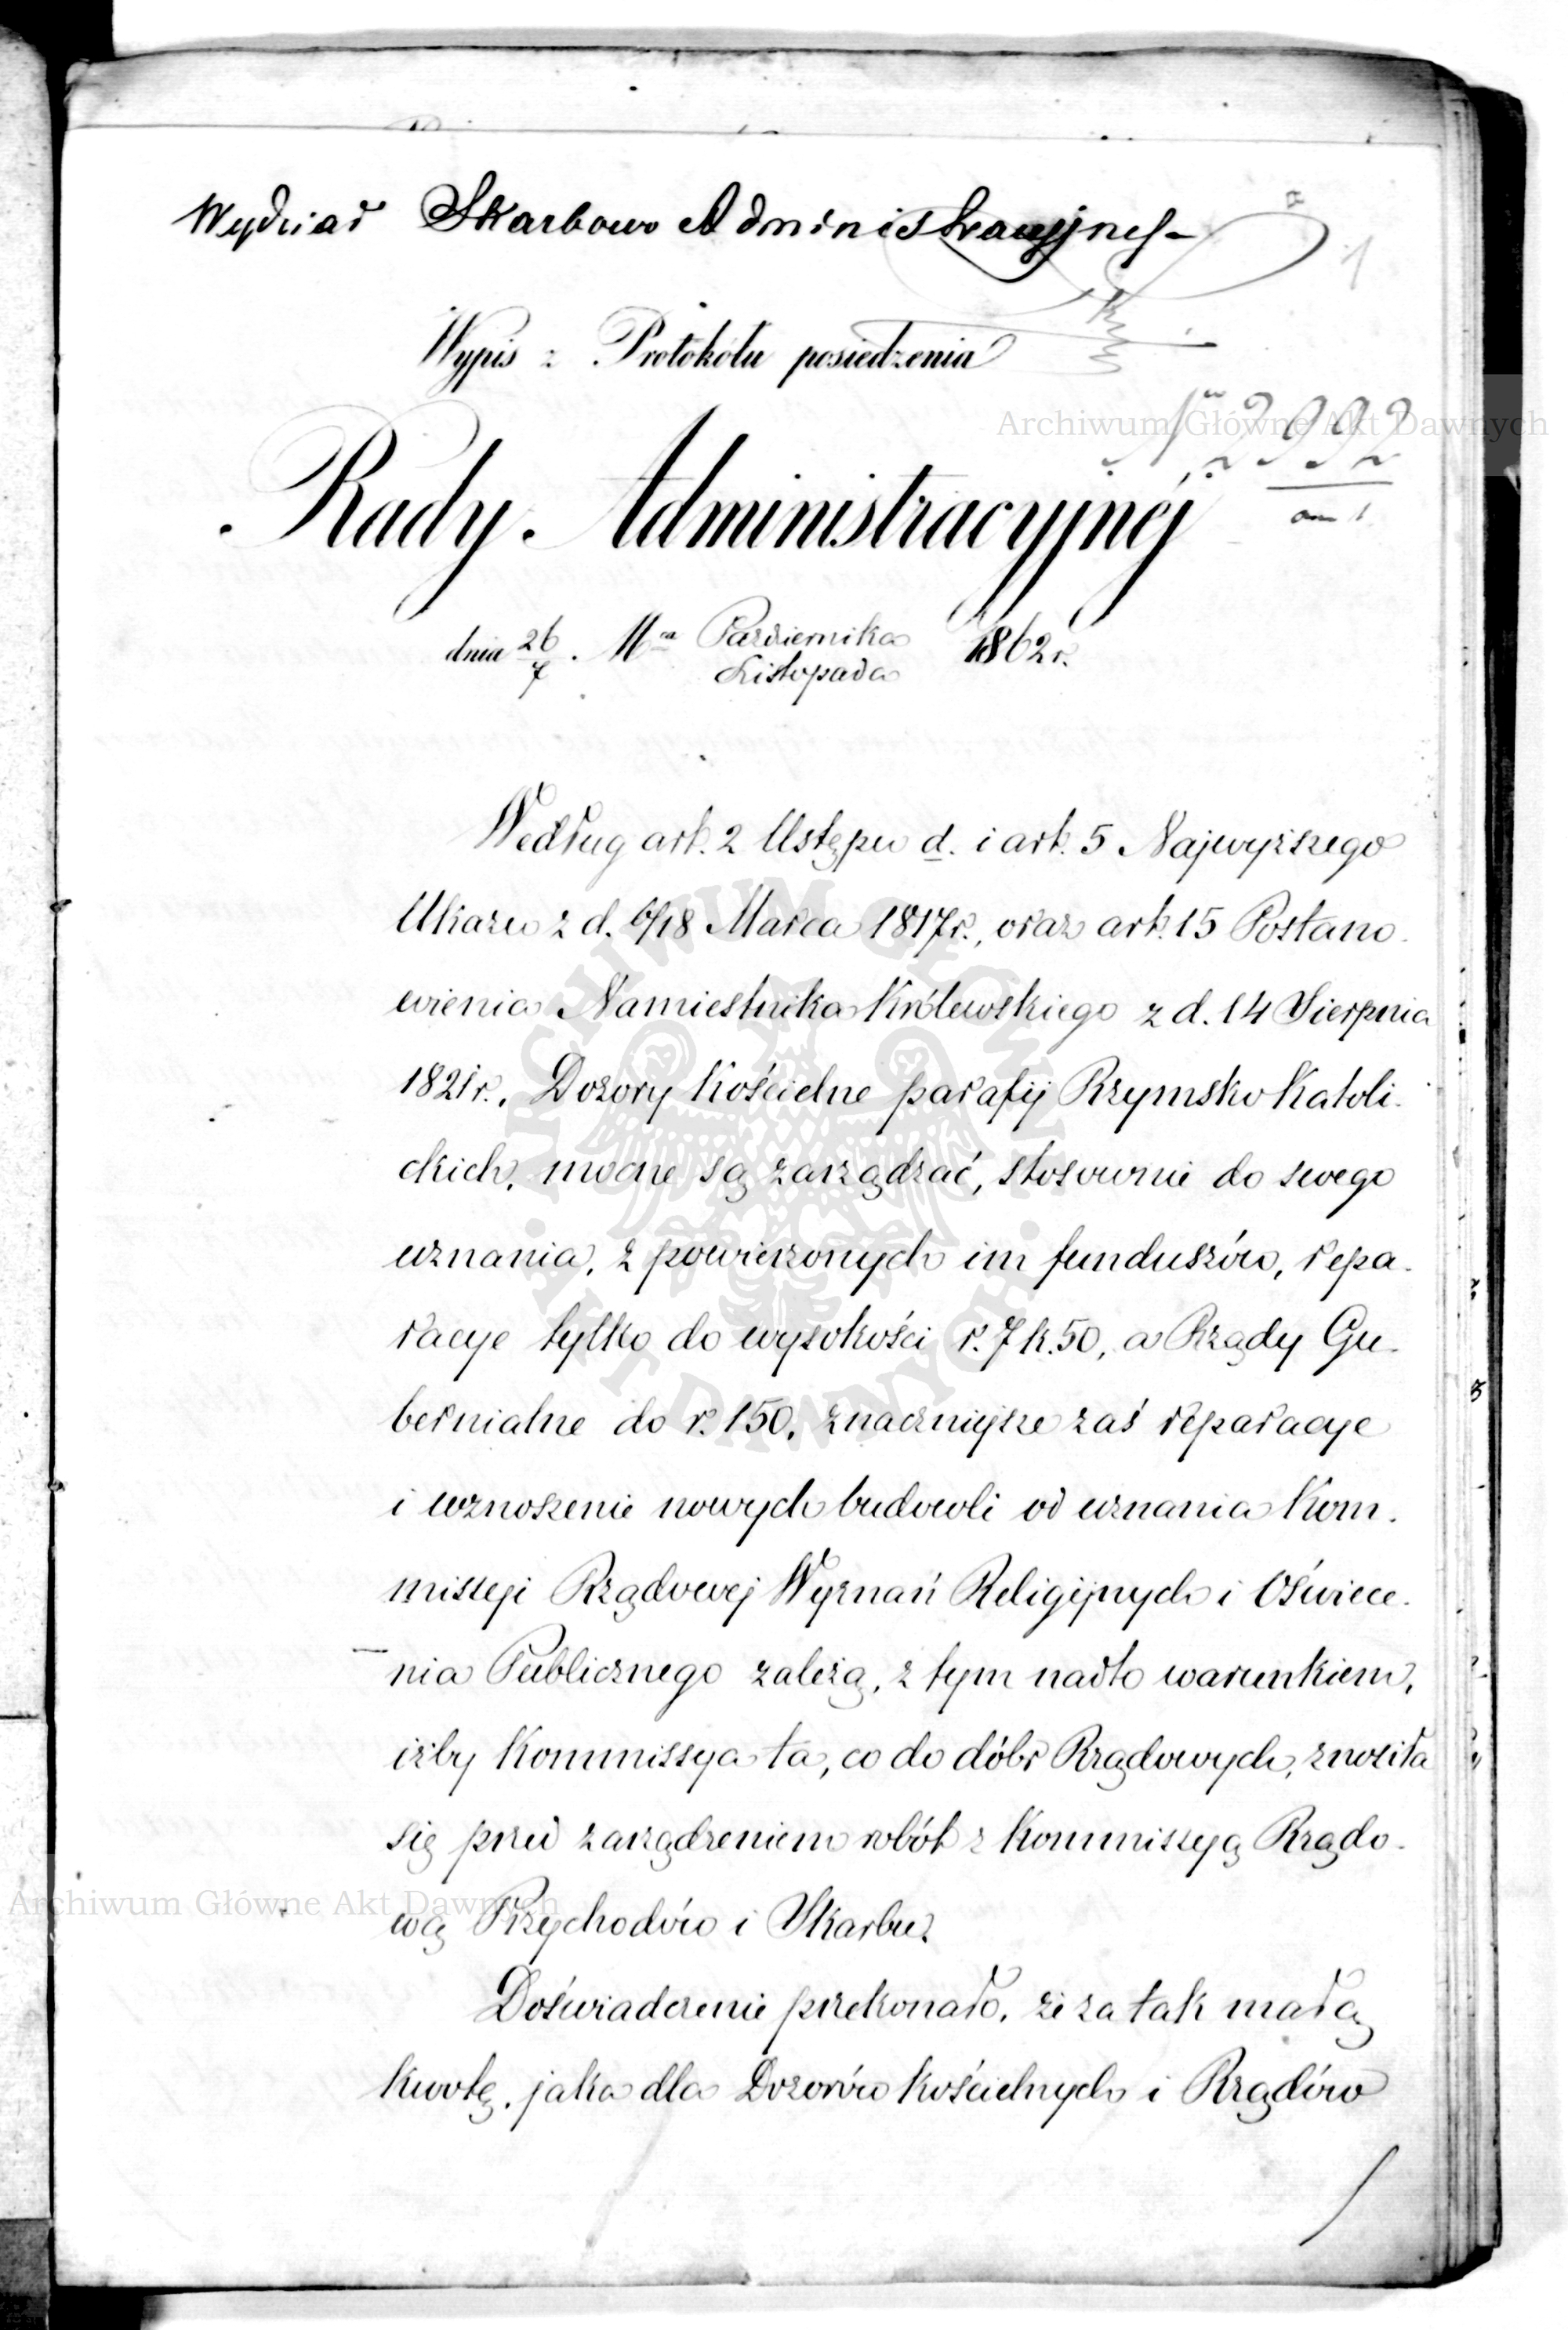 Wydział Skarbowo Administracyjny
1
Wypis z Protokółu posiedzenia
Nº 2992
Rady Administracyjnéj
dnia 26/7 Mca Października/Listopada 1862 r.
Według art. 2 Ustępu d. i art. 5 Najwyższego
Ukazu z d. 6/18 Marca 1817 r., oraz art. 15 Postano-
wienia Namiestnika Królewskiego z d. 14 Sierpnia
1821 r., Dozory Kościelne parafij Rzymsko Katoli-
ckich, mocne są zarządzać, stosownie do swego
uznania, z powierzonych im funduszów, repa-
racye tylko do wysokości r. 7 k. 50, a Rządy Gu-
bernialne do r. 150, znaczniejsze zaś reparacye
i wznoszenie nowych budowli od uznania Kom-
missyi Rządowej Wyznań Religijnych i Oświece-
nia Publicznego zależą, z tym nadto warunkiem,
iżby Kommissya ta, co do dóbr Rządowych, znosiła
się przed zarządzeniem robót z Kommissyą Rządo-
wą Przychodów i Skarbu.
Doświadczenie przekonało, że za tak małą
kwotę, jaka dla Dozorów Kościelnych i Rządów
Archiwum Główne Akt Dawnych
Archiwum Główne Akt Dawnych
ARCHIWUM GŁÓWNE AKT DAWNYCH